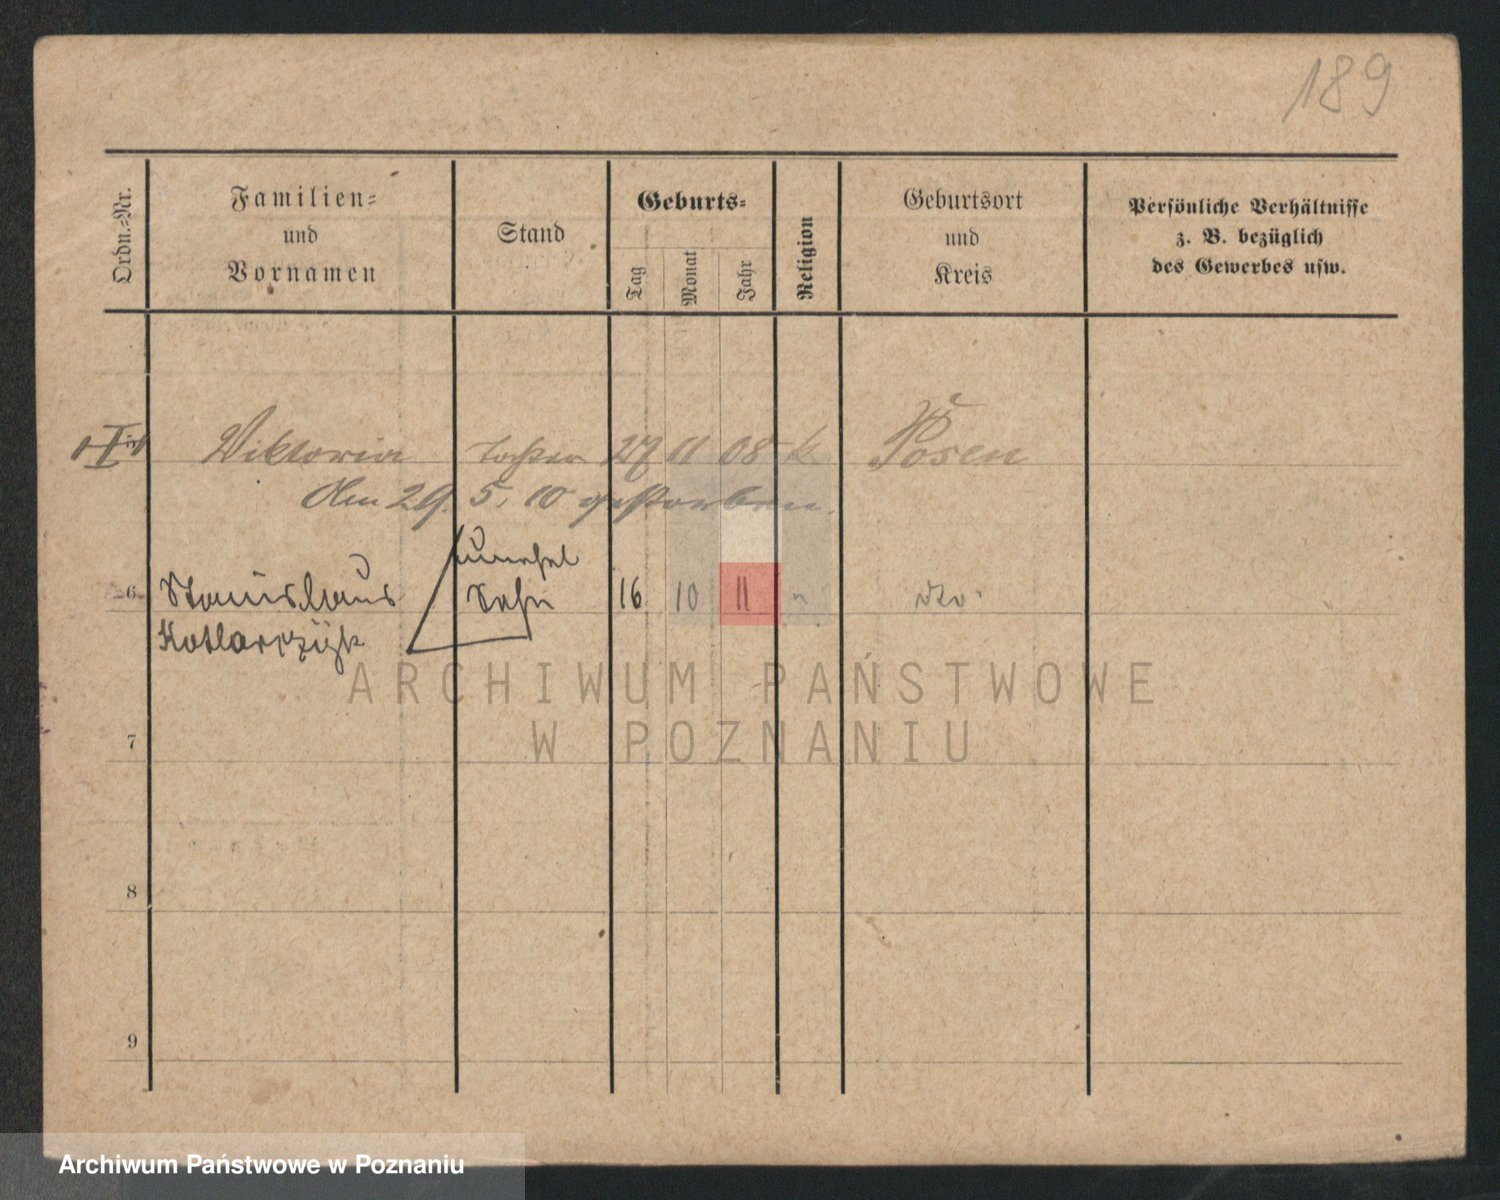 189
Ordn.-Nr.
Familien-
und
Vornamen
Stand
Geburts-
Tag
Monat
Jahr
Religion
Geburtsort
und
Kreis
Persönliche Verhältnisse
z. B. bezüglich
des Gewerbes usw.
5 Viktoria Tochter 27 11 08 k Posen
Am 29. 5. 10 gestorben.
unehel
6 Stanislaus Sohn 16 10 11 " dto
Kotlarczyk
ARCHIWUM PAŃSTWOWE
W POZNANIU
7
8
9
Archiwum Państwowe w Poznaniu